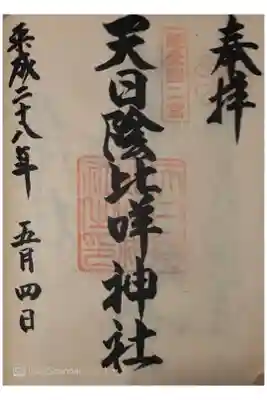 奉拝
天日陰比咩神社
平成二十八年 五月四日